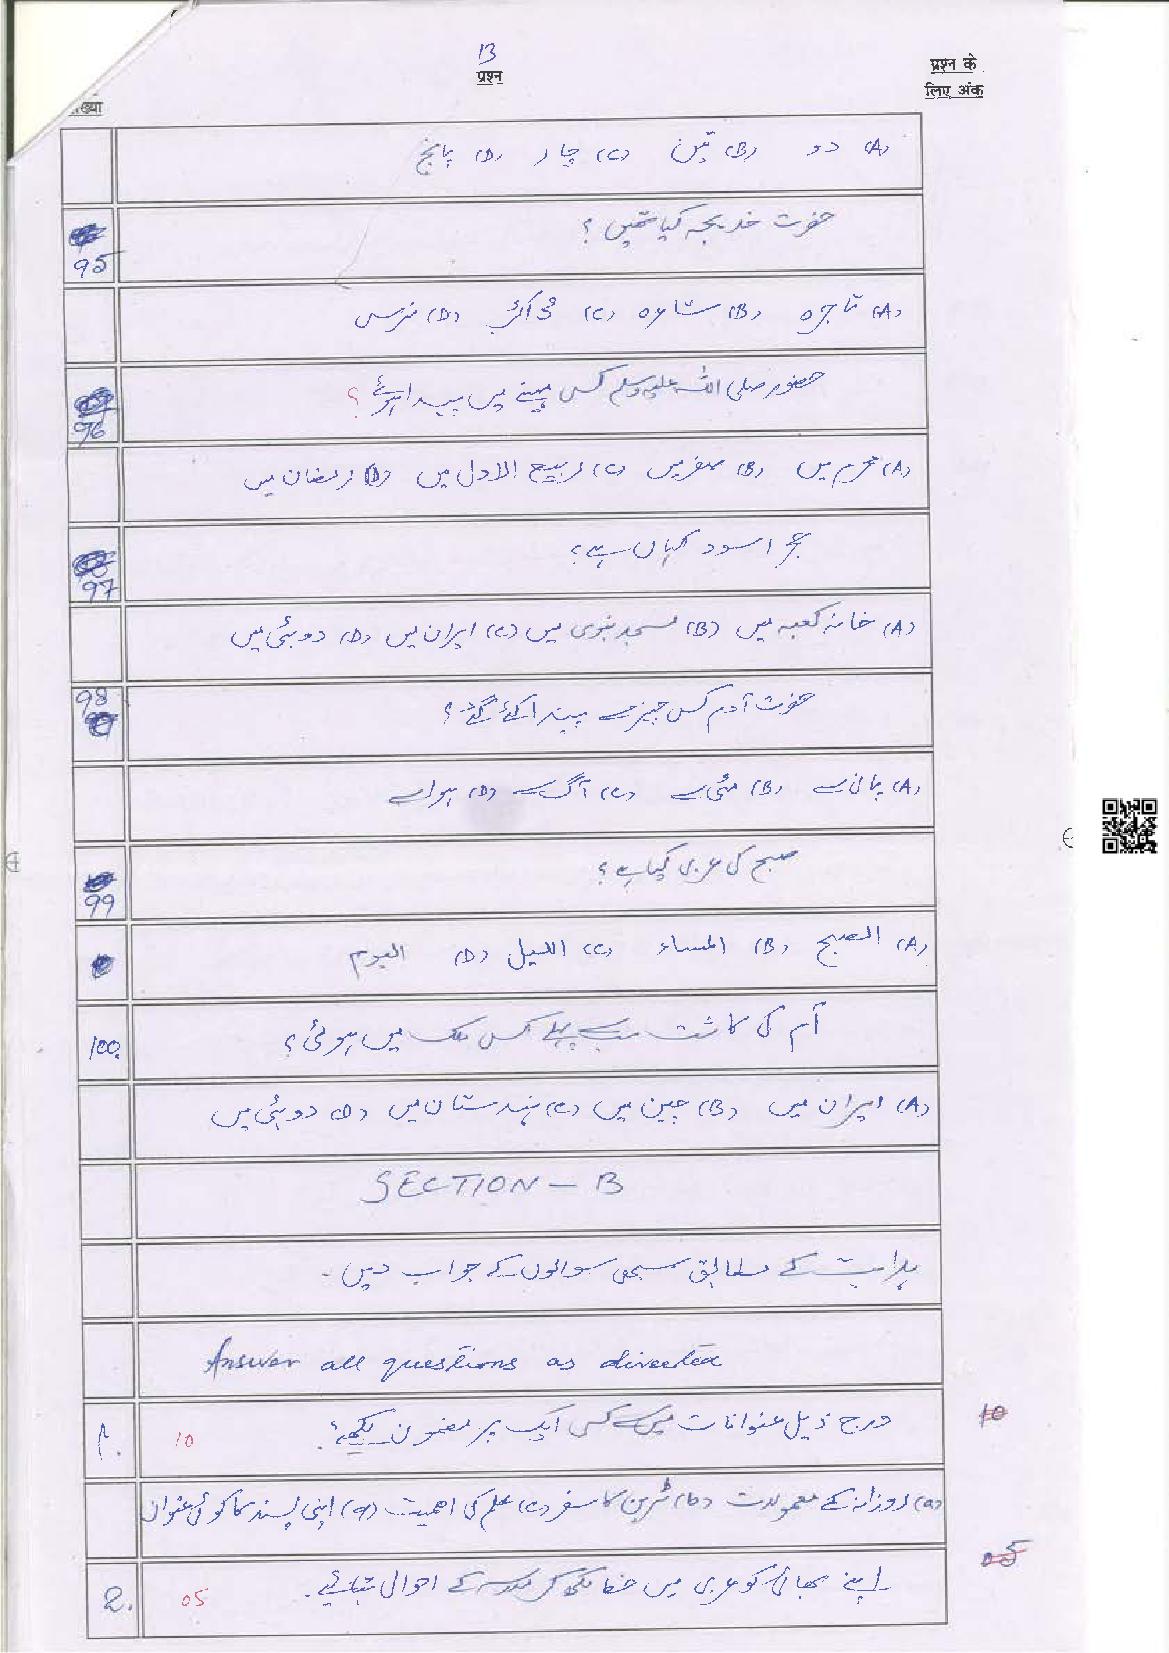 13
प्रश्न
प्रश्न के
लिए अंक
ख्या
(A) دو (B) تین (C) چار (D) پانچ
95 حضرت خدیجہ کیا تھیں ؟
(A) تاجرہ (B) شاعرہ (C) ڈاکٹر (D) نرس
96 حضور صلی اللہ علیہ وسلم کس مہینے میں پیدا ہوئے ؟
(A) محرم میں (B) صفر میں (C) ربیع الاول میں (D) رمضان میں
97 حجر اسود کہاں ہے ؟
(A) خانہ کعبہ میں (B) مسجد نبوی میں (C) ایران میں (D) دوبئی میں
98 حضرت آدم کس چیز سے پیدا کئے گئے ؟
(A) پانی سے (B) مٹی سے (C) آگ سے (D) ہوا سے
99 صبح کی عربی کیا ہے ؟
(A) الصبح (B) المساء (C) اللیل (D) الیوم
100. آم کی کاشت سب سے پہلے کس ملک میں ہوئی ؟
(A) ایران میں (B) چین میں (C) ہندستان میں (D) دوبئی میں
SECTION - B
ہدایت کے مطابق سبھی سوالوں کے جواب دیں ۔
Answer all questions as directed
1. درج ذیل عنوانات میں سے کسی ایک پر مضمون لکھئے ؟ 10 10
(a) روزانہ کے معمولات (b) ٹرین کا سفر (c) علم کی اہمیت (d) اپنی پسند کا کوئی عنوان
2. اپنے بھائی کو عربی میں خط لکھ کر مدرسہ کے احوال بتائیے ۔ 05 05